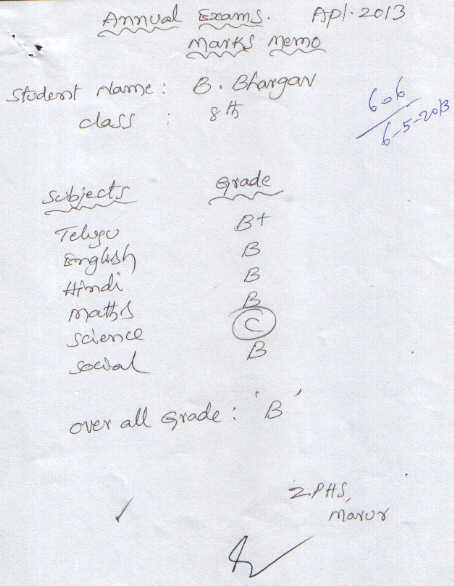 Annual Exams. Apl-2013
Marks Memo
Student Name: B. Bhargav
class : 8th
606
6-5-2013
Subjects Grade
Telugu B+
English B
Hindi B
Maths B
Science C
Social B
over all Grade: 'B'
ZPHS,
Marur